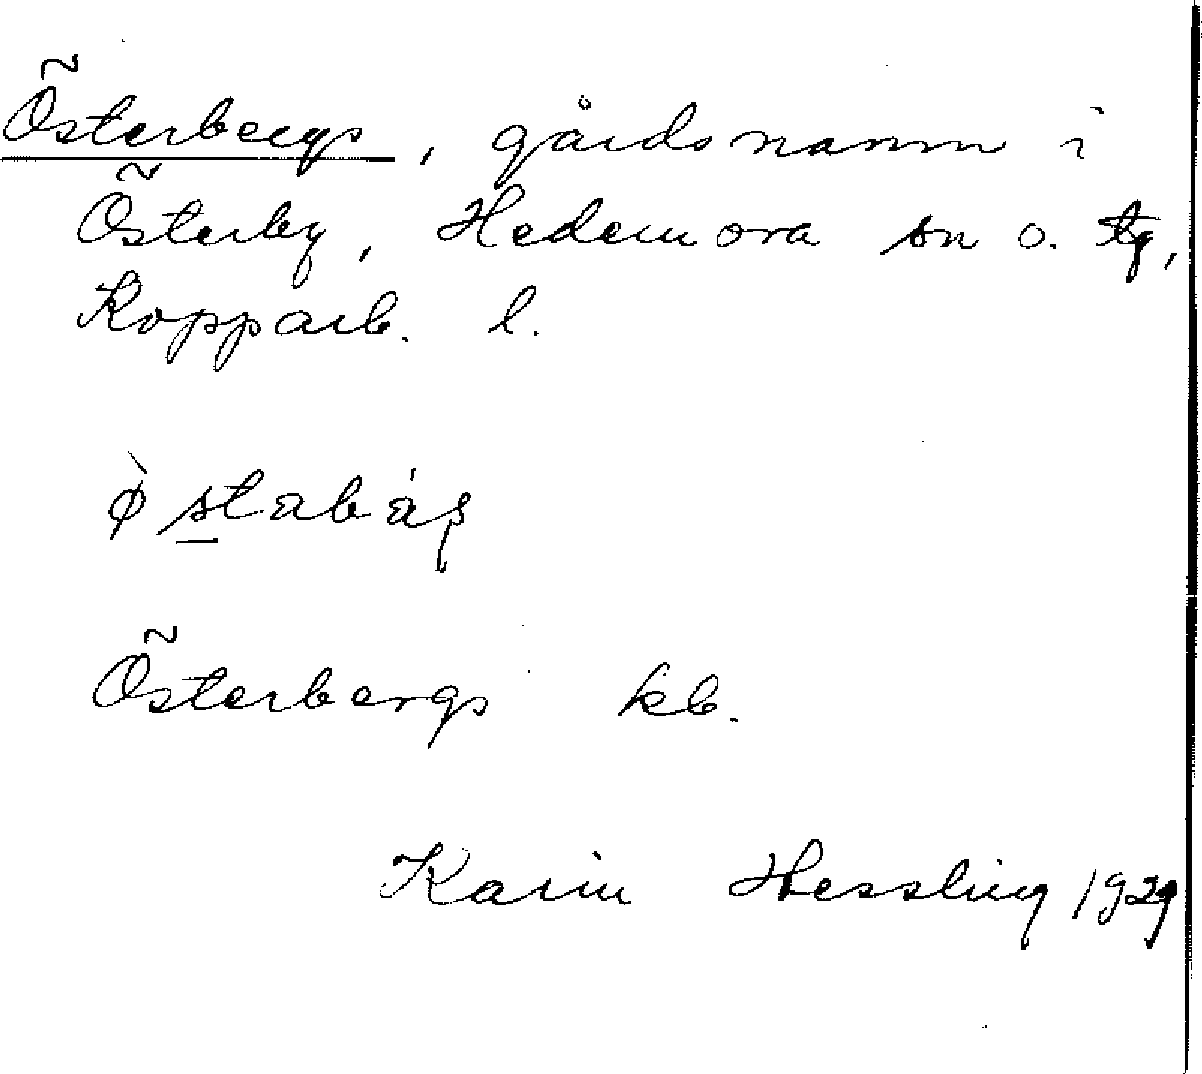 Österbergs, gårdsnamn i
Österby, Hedemora sn o. tg,
Kopparb. l.
ø̀stabáş
Österbergs kb.
Karin Hessling 1929